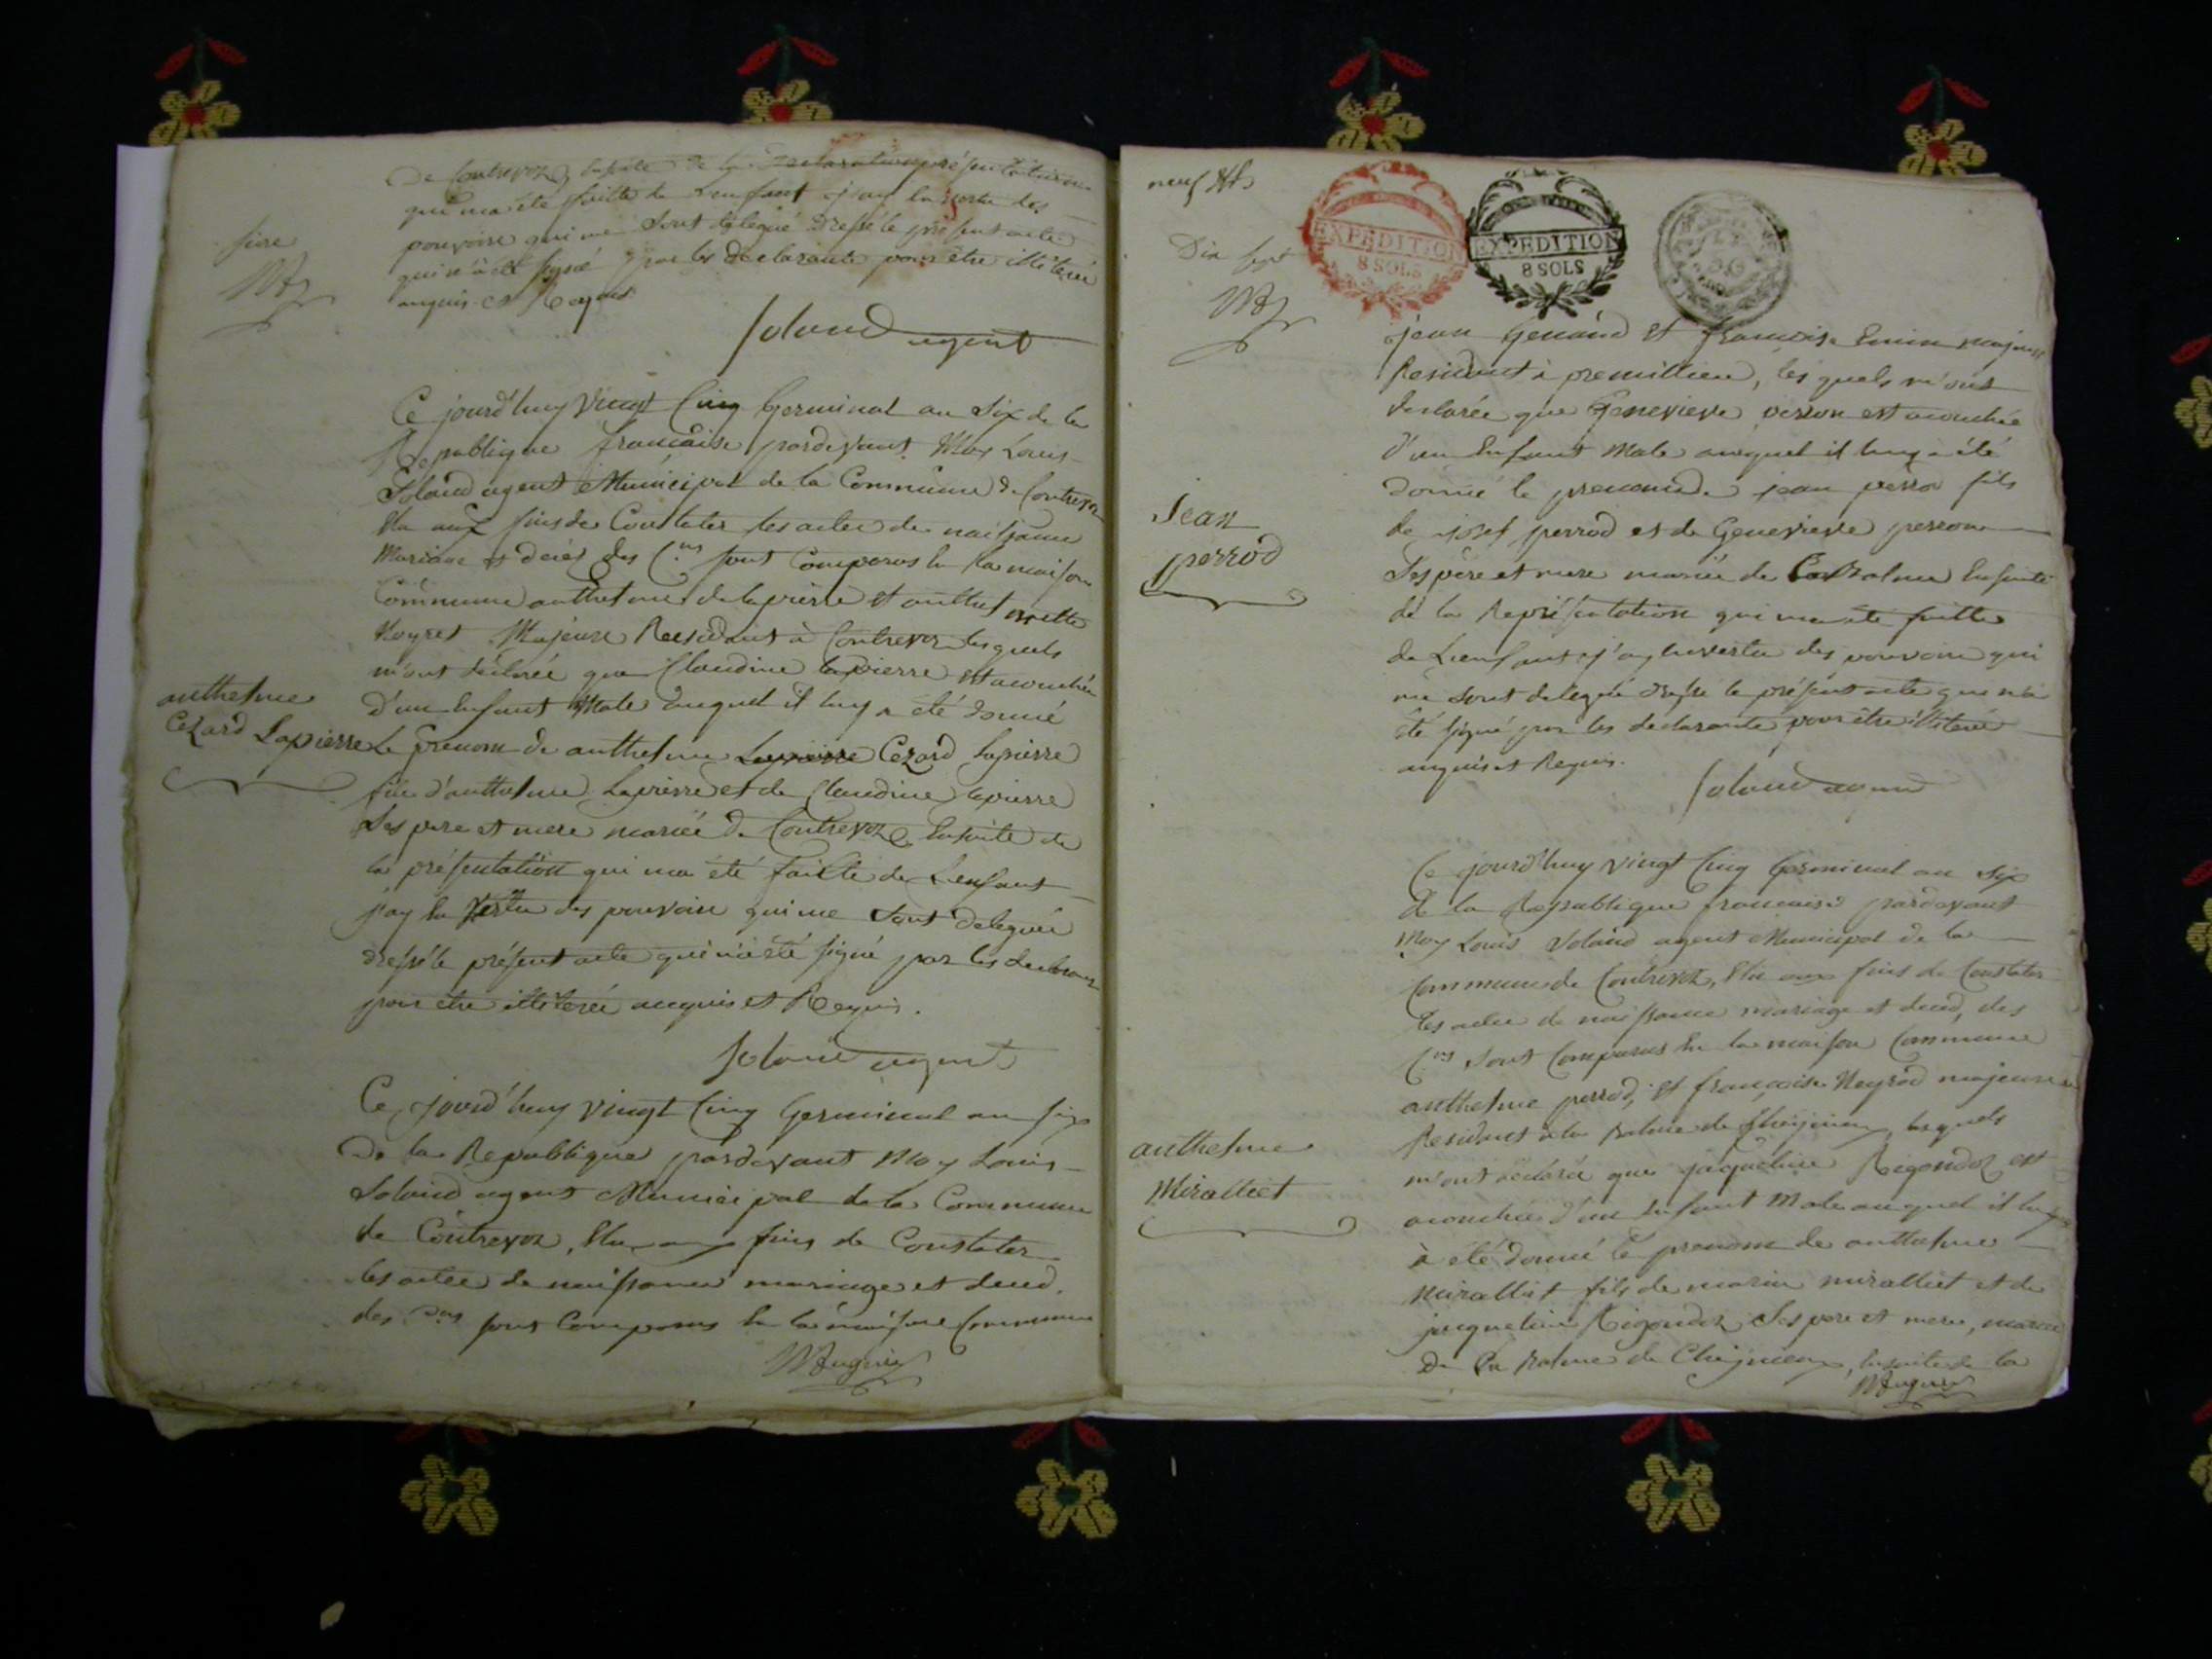 De Contrevoz Ensuite de la déclaration présentation
qui ma été faitte de L'enfant j'ay En vertu des
pouvoirs qui me sont délégué Dressé le présent acte
qui n'a été signé par les déclarants pour être illiteré
anquis et Requis
Soland agent
Ce jourd'huy Vingt Cinq Germinal an Six de la
Republique française pardevant Moy Louis
Soland agent Municipal de la Commune de Contrevoz
Elu aux fins de Constater les actes de naissance
Mariage et décès des C.ens sont Comparus En la maison
Commune anthelme de lapierre et
Neyret Majeurs Residants à Contrevoz lesquels
m'ont déclarée que Claudine lapierre est acouchée
D'un Enfant Male auquel il luy a été donné
Le prenom de anthelme Lapierre Cezard lapierre
fils d'anthelme Lapierre et de Claudine lapierre
Ses pere et mere mariée de Contrevoz Ensuite de
la présentation qui ma été faitte de L'enfant
j'ay En Vertu des pouvoirs qui me sont delegués
dressé le présent acte qui n'a été signé par les declarans
pour etre illiterée anquis et Requis.
Soland agent
Ce jourd'huy Vingt Cinq Germinal an six
De la Republique pardevant Moy Louis
Soland agent Municipal de la Commune
de Contrevoz, Elu aux fins de Constater
les actes de naissance mariage et deced.
des C.ens sont Comparus En la maison Commune
anthelme
Cezard Lapierre
neuf
Dix sept
EXPEDITION
8 SOLS
EXPEDITION
8 SOLS
jean et françoise majeurs
Residants à premillieu, les quels m'ont
declarée que Genevieve perron est acouchée
d'un Enfant Male auquel il luy a été
donné le prenom de jean perrod fils
de josef perrod et de Genevieve perron
Ses père et mere mariée de La Balme Ensuite
de la Représentation qui ma été faitte
de L'enfant j'ay En vertu des pouvoirs qui
me sont delegué dressé le présent acte qui n'a
été signé par les declarants pour être illiteré
anquis et Requis.
Soland agent
Ce jourd'huy vingt Cinq Germinal an Six
de la Republique francaise pardevant
Moy Louis Soland agent Municipal de la
Commune de Contrevoz, Elu aux fins de Constater
les actes de naissance mariage et deced, des
C.ens sont Comparus En la maison Commune
anthelme perrod, et françoise Neyrod majeurs
Residants a la Balme de lesquels
m'ont déclarée que jaqueline Rigondoz est
acouchée d'un Enfant Male auquel il luy
à été donné le prenom de anthelme
Miralliet fils de marin miralliet et de
jacqueline Rigondoz Ses pere et mere, mariée
De La Balme de Ensuite de la
Jean
perrod
anthelme
Miralliet